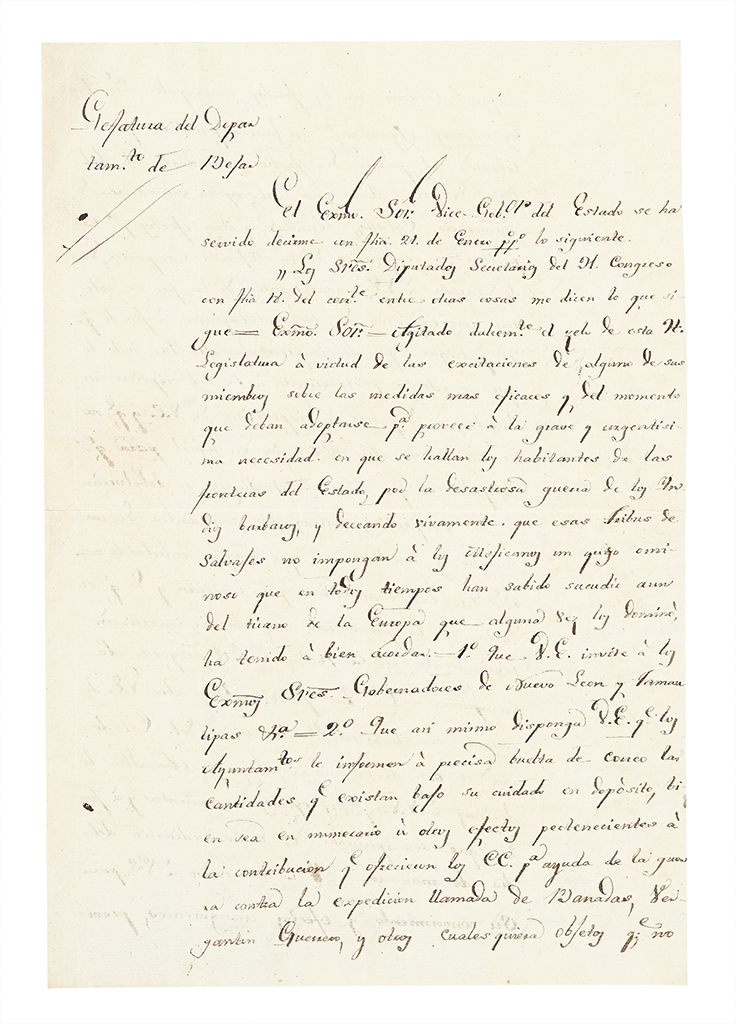 Gefatura del Depar
tam.to de Bejar
El Exmo. Sor. Vice-Gob.or del Estado se ha
servido decirme con fha 21. de Enero pp.o lo siguiente.
„ Los Sres. Diputados Secretarios del H. Congreso
con fha 12. del corr.te entre otras cosas me dicen lo que si-
gue = Exmo. Sor. = Agitado dulcem.te el zelo de esta H.
Legislatura à virtud de las excitaciones de alguno de sus
miembros sobre las medidas mas eficaces y del momento
que deban adoptarse p.a proveer à la grave y urgentisi-
ma necesidad en que se hallan los habitantes de las
fronteras del Estado, por la desastrosa guerra de los Yn
dios barbaros, y deceando vivamente que esas Tribus de
Salvajes no impongan à los Mejicanos un yugo omi-
noso que en todos tiempos han sabido sacudir aun
del tirano de la Europa que alguna vez los dominò,
ha tenido à bien acordar. = 1.o Que V.E. invite à los
Exmos. Sres. Gobernadores de Nuevo Leon y Tamau
lipas &a. = 2.o Que asi mismo disponga V.E. q.e los
Ayuntam.tos le informen à precisa buelta de correo las
cantidades q.e existan bajo su cuidado en depòsito, bi-
en sea en numerario ù otros efectos pertenecientes à
la contribucion q.e ofrecieron los CC. p.a ayuda de la guer
ra contra la expedicion llamada de Banadas, Ver
gantin Guerrero, y otros cuales quiera objetos q.e no